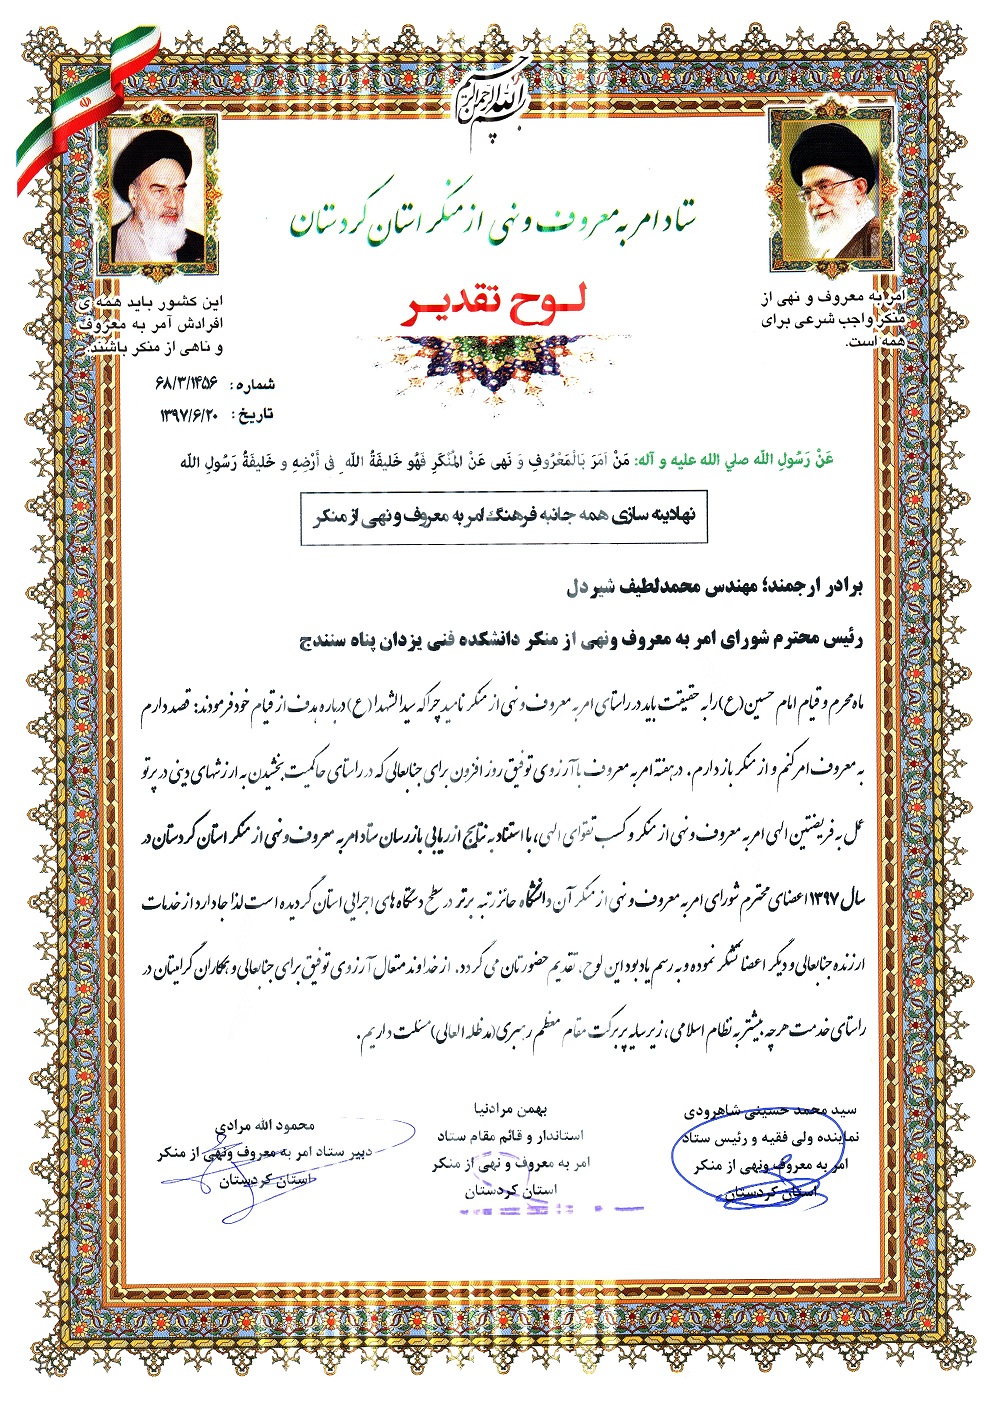 بسم الله الرحمن الرحیم
ستاد امر به معروف و نهی از منکر استان کردستان
لوح تقدیر
امر به معروف و نهی از
منکر واجب شرعی برای
همه است.
این کشور باید همه ی
افرادش آمر به معروف
و ناهی از منکر باشند.
شماره : ۶۸/۳/۱۴۵۶
تاریخ : ۱۳۹۷/۶/۲۰
عَنْ رَسُولِ اللّه صلي الله عليه و آله: مَنْ اَمَرَ بَالْمَعْرُوفِ وَ نَهى عَنْ الْمُنْكَرِ فَهُو خَليفَةُ اللّه ِ فى أَرْضِهِ و خَليفَةُ رَسُولِ اللّه
نهادینه سازی همه جانبه فرهنگ امر به معروف و نهی از منکر
برادر ارجمند؛ مهندس محمدلطیف شیردل
رئیس محترم شورای امر به معروف ونهی از منکر دانشکده فنی یزدان پناه سنندج
ماه محرم و قیام امام حسین(ع)را به حقیقت باید در راستای امر به معروف و نهی از منکر نامید چرا که سید الشهدا (ع) درباره هدف از قیام خود فرمودند: قصد دارم
به معروف امر کنم و از منکر باز دارم. در هفته امر به معروف با آرزوی توفیق روز افزون برای جنابعالی که در راستای حاکمیت بخشیدن به ارزشهای دینی در پرتو
عمل به فریضتین الهی امر به معروف و نهی از منکر و کسب تقوای الهی، با استناد به نتایج ارزیابی بازرسان ستاد امر به معروف و نهی از منکر استان کردستان در
سال ۱۳۹۷ اعضای محترم شورای امر به معروف و نهی از منکر آن دانشگاه حائز رتبه برتر در سطح دستگاه های اجرایی استان گردیده است لذا جا دارد از خدمات
ارزنده جنابعالی و دیگر اعضا تشکر نموده و به رسم یادبود این لوح، تقدیم حضورتان می گردد. از خداوند متعال آرزوی توفیق برای جنابعالی و همکاران گرامیتان در
راستای خدمت هرچه بیشتر به نظام اسلامی، زیر سایه پر برکت مقام معظم رهبری(مدظله العالی) مسئلت داریم.
سید محمد حسینی شاهرودی
نماینده ولی فقیه و رئیس ستاد
امر به معروف ونهی از منکر
استان کردستان
بهمن مرادنیا
استاندار و قائم مقام ستاد
امر به معروف و نهی از منکر
استان کردستان
محمود الله مرادی
دبیر ستاد امر به معروف ونهی از منکر
استان کردستان